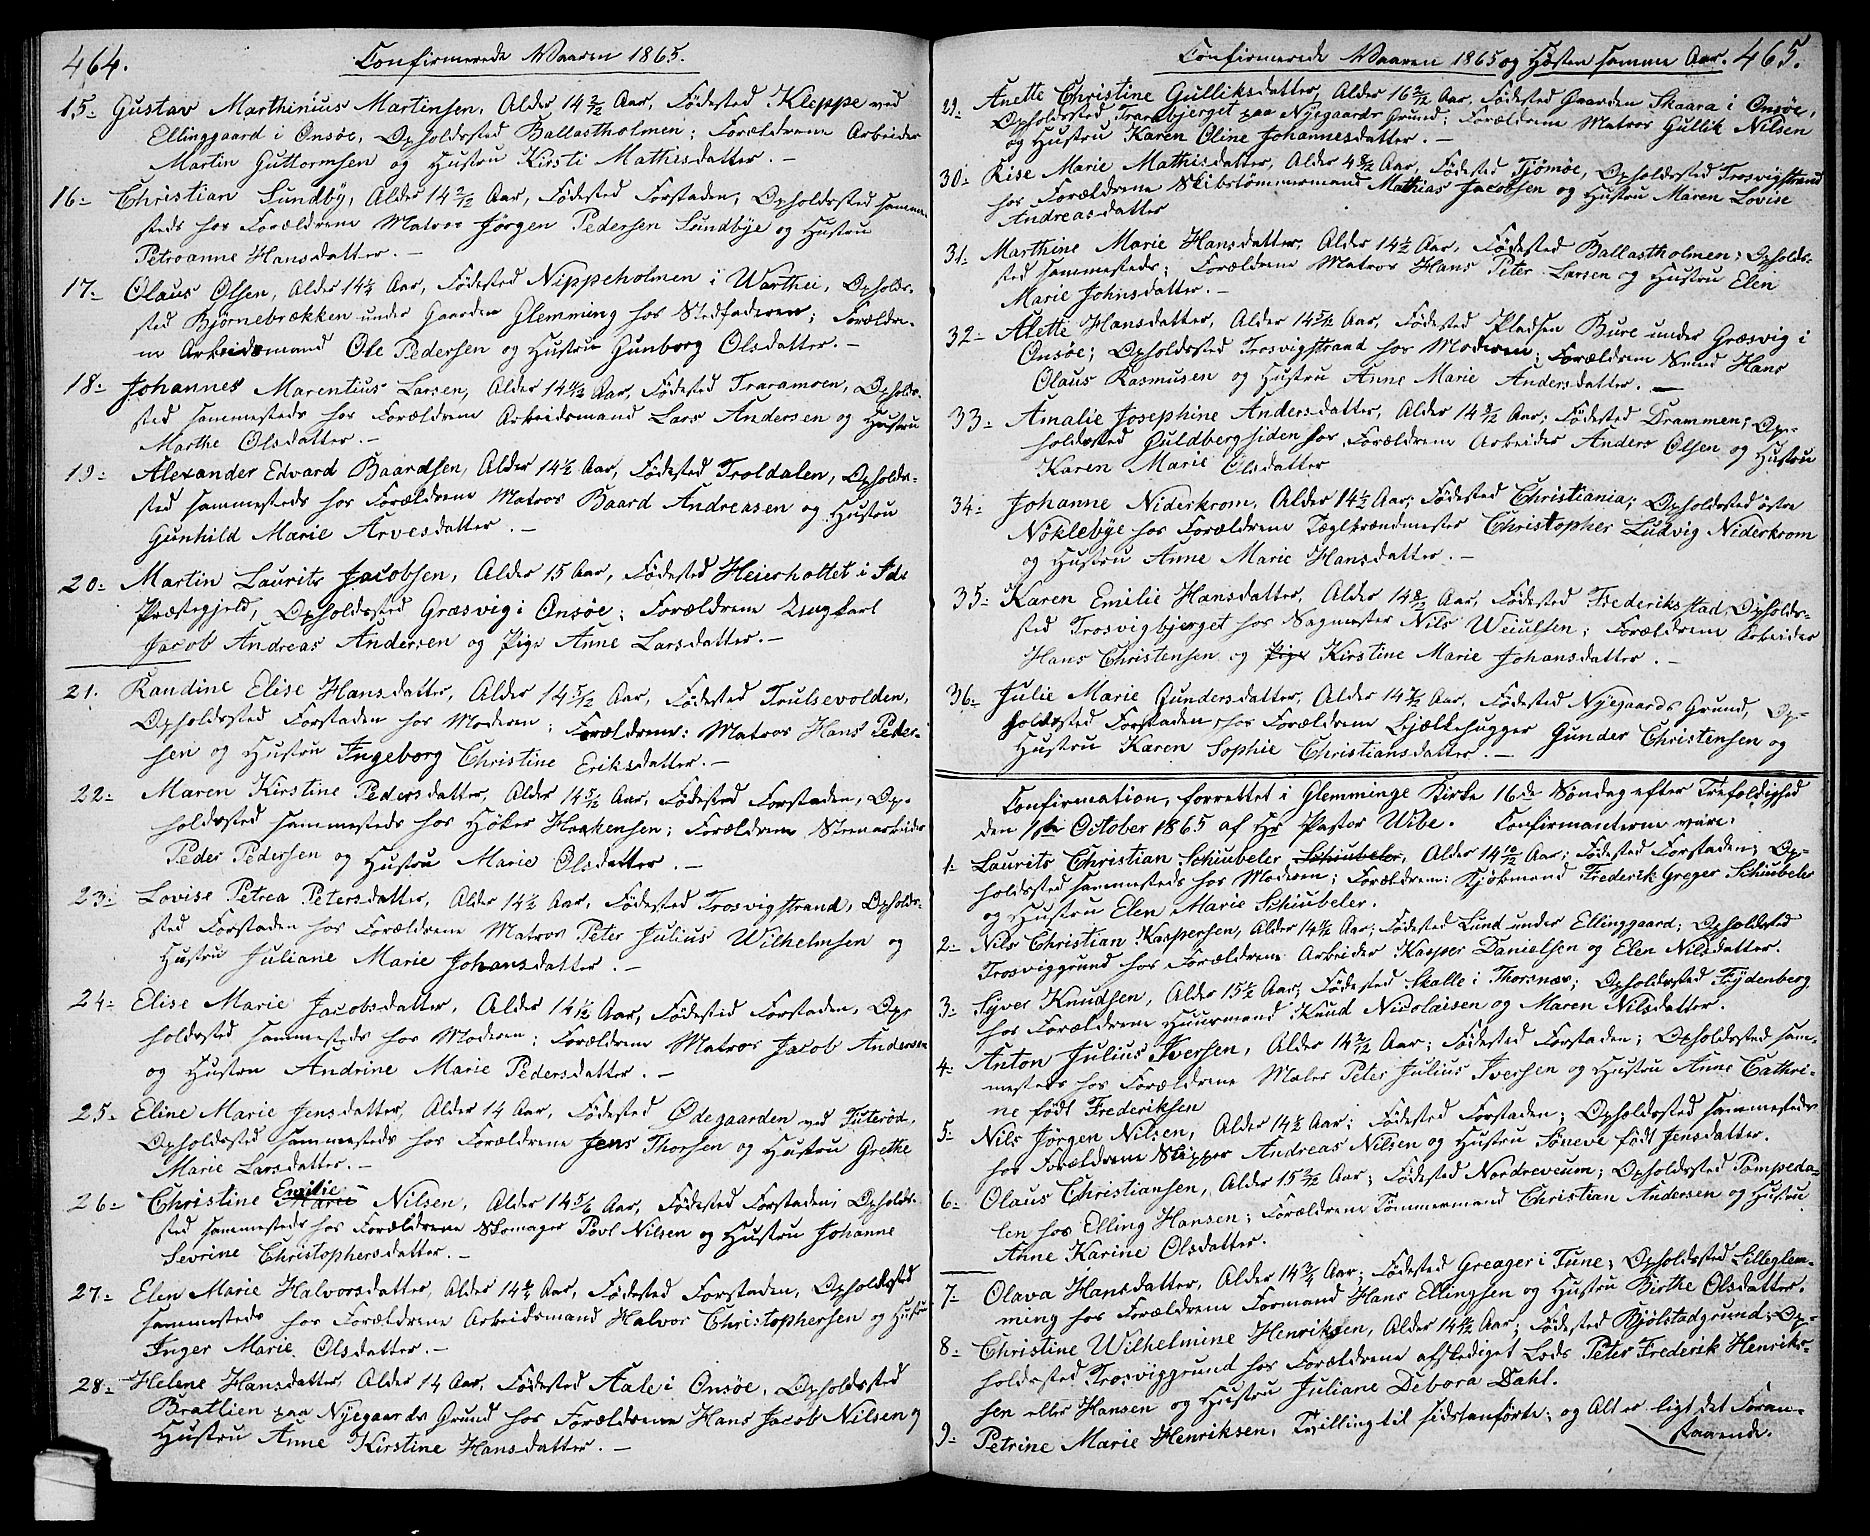 464.
Confirmerede Vaaren 1865.
15. Gustav Marthinius Martinsen, Alder 14 2/12 Aar, Födested Klippe ved
Ellinggaard i Onsöe, Opholdssted Ballastholmen; Forældrene Arbeider
Martin Guttormsen og Hustru Kirsti Mathisdatter. –
16. Christian Sundby, Alder 14 2/12 Aar, Födested Forstaden, Opholdssted samme-
steds hos Forældrene Matros Jörgen Pedersen Sundbye og Hustru
Petroanne Hansdatter. –
17. Olaus Olsen, Alder 14 Aar, Födested Nippeholmen i Warthei, Opholds-
sted Bjørnebrækken under Gaarden Glemming hos Stedfaderen; Forældre-
ne Arbeidsmand Ole Pedersen og Hustru Gunborg Olsdatter. –
18. Johannes Marentius Larsen, Alder 14 Aar, Födested Traramoen, Opholds-
sted sammesteds hos Forældrene Arbeidsmand Lars Andersen og Hustru
Marthe Olsdatter. –
19. Alexander Edvard Baardsen, Alder 14 1/2 Aar, Födested Troldalen, Opholds-
sted sammesteds hos Forældrene Matros Baard Andreasen og Hustru
Gunhild Marie Arvesdatter. –
20. Martin Laurits Jacobsen, Alder 15 Aar, Födested Heierholtet i Ids
Præstegjeld, Opholdssted Græsvig i Onsöe; Forældrene Ungkarl
Jacob Andreas Andersen og Pige Anne Larsdatter. –
21. Randine Elise Hansdatter, Alder 14 5/12 Aar, Födested Trulsevolden,
Opholdssted Forstaden hos Moderen; Forældrene: Matros Hans Peder-
sen og Hustru Ingeborg Christine Eriksdatter. –
22. Maren Kirstine Pedersdatter, Alder 14 5/12 Aar, Födested Forstaden, Op-
holdssted sammesteds hos Höker Haakensen; Forældrene Stenarbeider
Peder Pedersen og Hustru Marie Olsdatter. –
23. Lovise Petrea Petersdatter, Alder 14 1/2 Aar, Födested Trosvigstrand, Opholds-
sted Forstaden hos Forældrene Matros Peter Julius Wilhelmsen og
Hustru Juliane Marie Johansdatter. –
24. Elise Marie Jacobsdatter, Alder 14 1/2 Aar, Födested Forstaden, Op-
holdssted sammesteds hos Moderen; Forældrene Matros Jacob Andersen
og Hustru Andrine Marie Pedersdatter. –
25. Eline Marie Jensdatter, Alder 14 Aar, Födested Ødegaarden ved Tuteröd,
Opholdssted sammesteds hos Forældrene Jens Thorsen og Hustru Grethe
Marie Larsdatter. –
26. Christine Emilie Marie Nilsen, Alder 14 5/6 Aar, Födested Forstaden, Opholds-
sted sammesteds hos Forældrene Skomager Povl Nilsen og Hustru Johanne
Sevrine Christophersdatter. –
27. Elen Marie Halvorsdatter, Alder 14 Aar, Födested Forstaden, Opholdssted
sammesteds hos Forældrene Arbeidsmand Halvor Christophersen og Hustru
Inger Marie Olsdatter. –
28. Helene Hansdatter, Alder 14 Aar, Födested Aale i Onsöe, Opholdssted
Bratlien paa Nyegaards Grund hos Forældrene Hans Jacob Nilsen og
Hustru Anne Kirstine Hansdatter. –
Confirmerede Vaaren 1865 og Hösten samme Aar. 465.
29. Anette Christine Gulliksdatter, Alder 16 2/12 Aar, Födested Gaarden Skaara i Onsöe,
Opholdssted Trarabjerget paa Nyegaards Grund; Forældrene Matros Gullik Nilsen
og Hustru Karen Oline Johannesdatter. –
30. Rise Marie Mathisdatter, Alder 48/12 Aar, Födested Tjömöe, Opholdssted Trosvigstrand
hos Forældrene Skibstömmermand Mathias Jacobsen og Hustru Maren Lovise
Andreasdatter
31. Marthine Marie Hansdatter, Alder 14 1/2 Aar, Födested Ballastholmen; Opholds-
sted sammesteds; Forældrene Matros Hans Peter Larsen og Hustru Elen
Marie Johnsdatter. –
32. Alette Hansdatter, Alder 14 5/12 Aar, Födested Pladsen Bure under Græsvig i
Onsöe; Opholdssted Trosvigstrand hos Moderen; Forældrene Hans
Olaus Rasmusen og Hustru Anne Marie Andersdatter. –
33. Amalie Josephine Andersdatter, Alder 14 8/12 Aar; Födested Drammen; Op-
holdssted Guldbergsiden hos Forældrene Arbeider Anders Olsen og Hustru
Karen Marie Olsdatter
34. Johanne Niderkrom, Alder 14 1/2 Aar; Födested Christiania; Opholdssted östre
Nöklebye hos Forældrene Teglbrændmester Christopher Ludvig Niderkrom
og Hustru Anne Marie Hansdatter. –
35. Karen Emilie Hansdatter, Alder 14 8/12 Aar, Födested Frederikstad, Opholds-
sted Trosvigbjerget hos Sagmester Nils Weiulsen; Forældrene Arbeider
Hans Christensen og Pige Kirstine Marie Johansdatter. –
36. Julie Marie Gundersdatter, Alder 14 Aar, Födested Nyegaards Grund, Op-
holdssted Forstaden, hos Forældrene Bjælkehugger Gunder Christensen og
Hustru Karen Sophie Christiansdatter. –
Confirmation, forrettet i Glemminge Kirke 16de Söndag efter Trefoldighed
den 1ste October 1865 af Hr Pastor Wibe. Confirmanterne vare:
1. Laurits Christian Schiubeler Schiubeler, Alder 14 10/12 Aar; Födested Forstaden; Op-
holdssted sammesteds hos Moderen; Forældrene: Kjökmand Frederik Greger Schiubeler
og Hustru Elen Marie Schiubeler.
2. Nils Christian Kaspersen, Alder 14 1/2 Aar; Födested Lund under Ellinggaard; Opholdssted
Trosviggrund hos Forældrene Arbeider Kasper Danielsen og Elen Nilsdatter.
3. Syver Knudsen, Alder 15 1/2 Aar; Födested Skalle i Thorsnæs; Opholdssted Frydenberg
hos Forældrene Huusmand Knud Nicolaisen og Maren Nilsdatter.
4. Anton Julius Iversen, Alder 14 2/12 Aar; Födested Forstaden; Opholdssted sam-
mesteds hos Forældrene Maler Peter Julius Iversen og Hustru Anne Cathri-
ne födt Frederiksen
5. Nils Jörgen Nilsen, Alder 14 1/2 Aar; Födested Forstaden; Opholdssted sammesteds
hos Forældrene Skipper Andreas Nilsen og Hustru Söneve födt Jensdatter.
6. Olaus Christiansen, Alder 15 2/12 Aar; Födested Nordreveum; Opholdssted Pompeda-
len hos Elling Hansen; Forældrene Tömmermand Christian Andersen og Hustru
Anne Karine Olsdatter.
7. Olava Hansdatter, Alder 14 3/4 Aar; Födested Greager i Tune; Opholdssted Lilleglem-
ming hos Forældrene Formand Hans Ellingsen og Hustru Birthe Olsdatter.
8. Christine Wilhelmine Henriksen, Alder 14 Aar; Födested Kjölstadgrund; Op-
holdssted Trosviggrund hos Forældrene afskediget Lods Peter Frederik Henrik-
sen eller Hansen og Hustru Juliane Debora Dahl.
9. Petrine Marie Henriksen, Tvilling til sidstanförte; og Alt er ligt det Foran-
staaende.